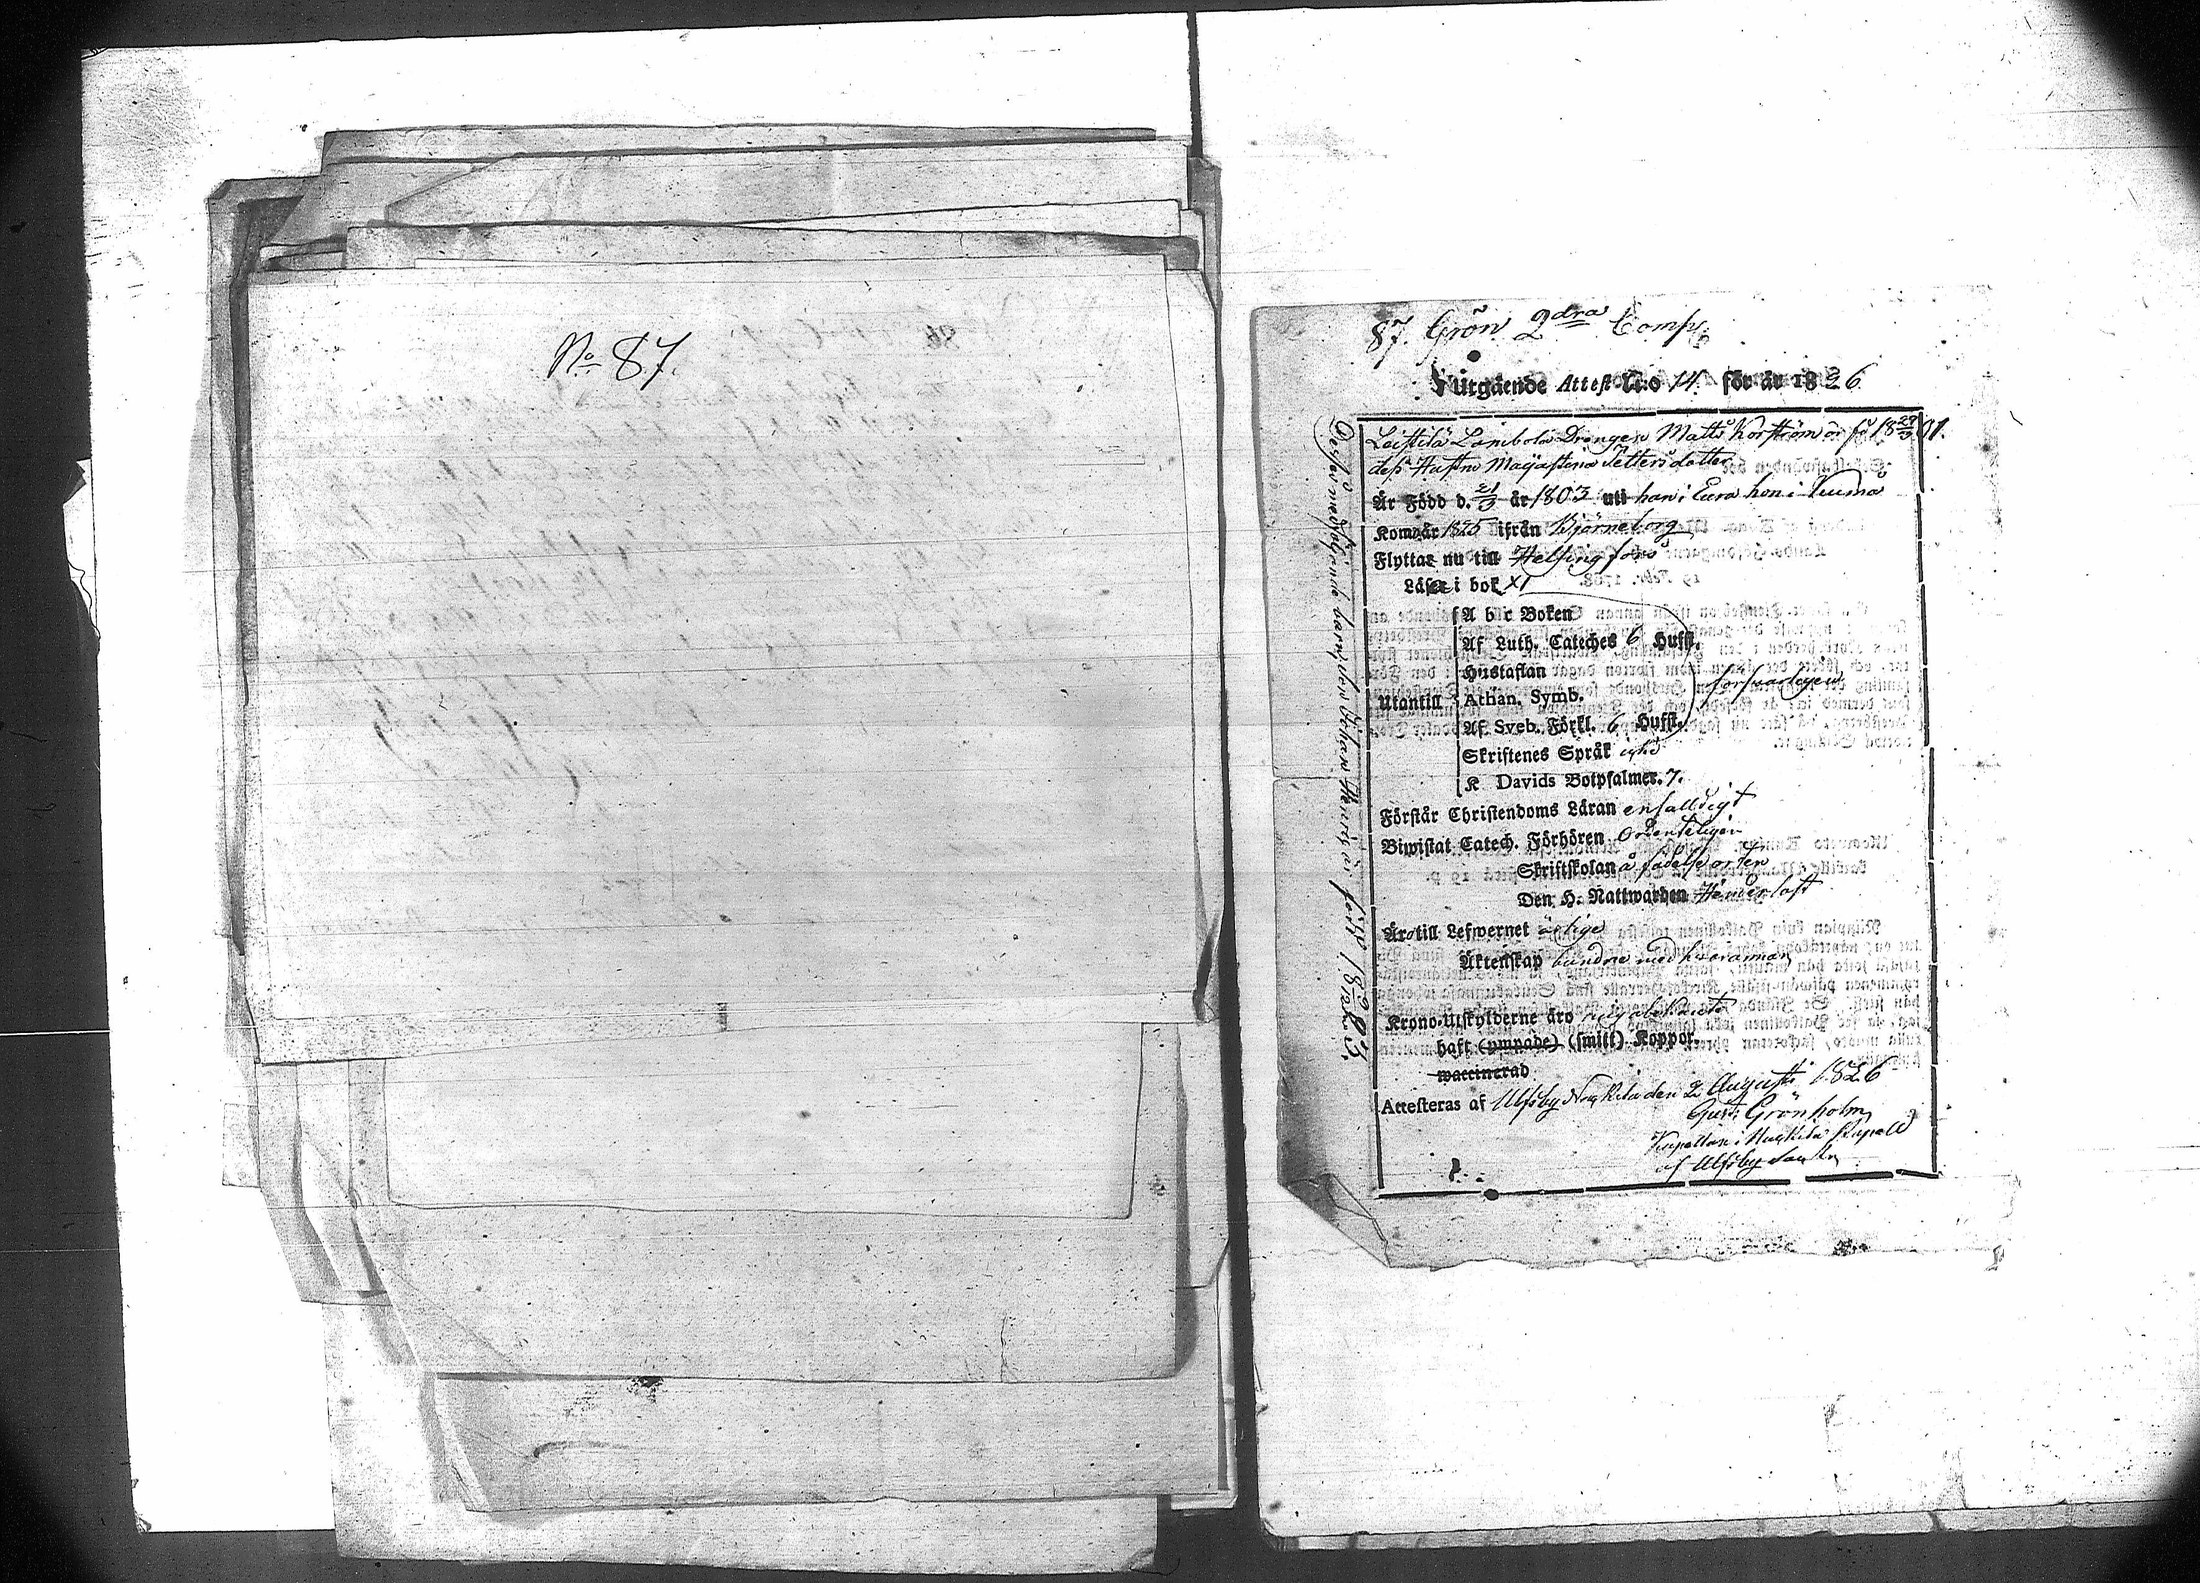 No 87.
87. Grön 2dra Comp.
Utgående Attest N:o 14. för år 1826.
Leistilä Lambola Drengen Matts Korström är fö 18 29/3 01.
dess Hustru Maja Stina Pettersdotter
Är Född d. 21/3 år 1803 uti han i Eura hon i Kumå
Kom år 1825 ifrån Björneborg
Flyttar nu till Helsingfors
Läser i bok XI
A b c Boken
Af Luth. Cateches 6 Hufst.
Hustaflan
försvarligen
Utantill Athan. Symb.
Af Sveb. Förkl. 6 Hufst.
Skriftenes Språk
K Davids Botpsalmer. 7.
Förstår Christendoms Läran enfalldigt
Biwistat Catech. Förhören Ordenteligen
Skriftskolan å födelse orten
Den H. Nattwarden
Äro till Lefwernet ärlige
Äktenskap bundne med hvarannan
Krono-Utskylderne äro
haft (ympade) (smitt) Koppor.
waccinerad
Attesteras af Ulfsby Naskila den 2 Augusti 1826
Gust: Grönholm
Kapellan i Kapell
af Ulfsby
Dessa medföljande barn, Johan Henric är född 18